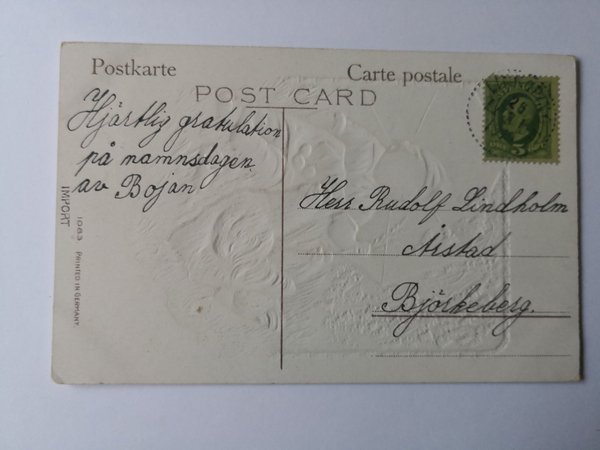 Postkarte
Carte postale
POST CARD
Hjärtlig gratulation
på namnsdagen
av Bojan
Herr Rudolf Lindholm
Årstad
Björkeberg.
IMPORT
1083 PRINTED IN GERMANY.
5